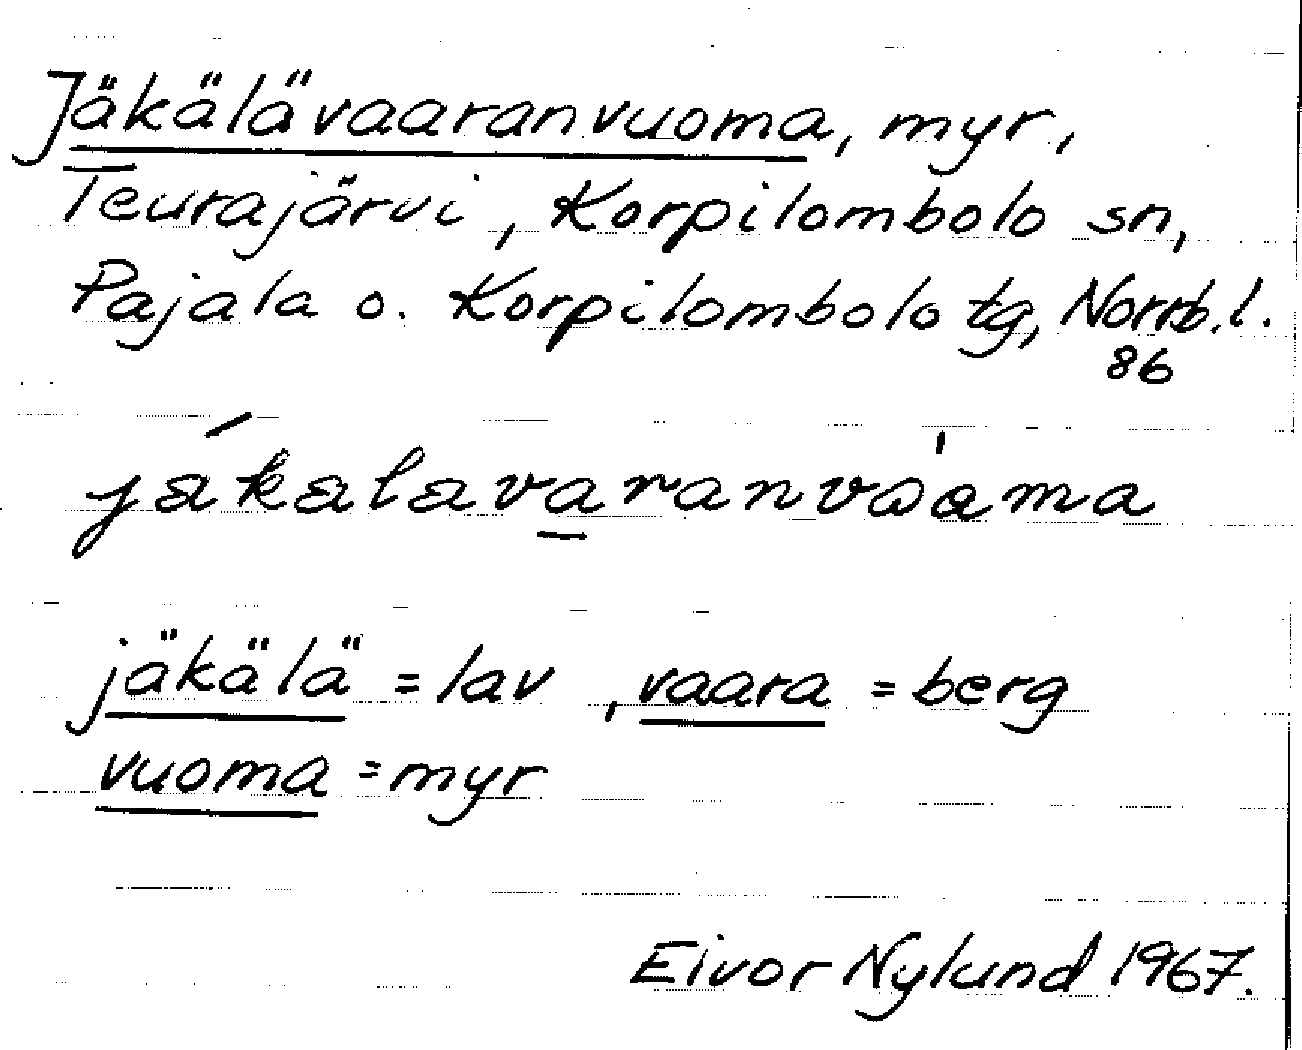 Jäkälävaaranvuoma, myr,
Teurajärvi, Korpilombolo sn,
Pajala o. Korpilombolo tg, Norrb. l.
86
jäkälä = lav, vaara = berg
vuoma = myr
Eivor Nylund 1967.